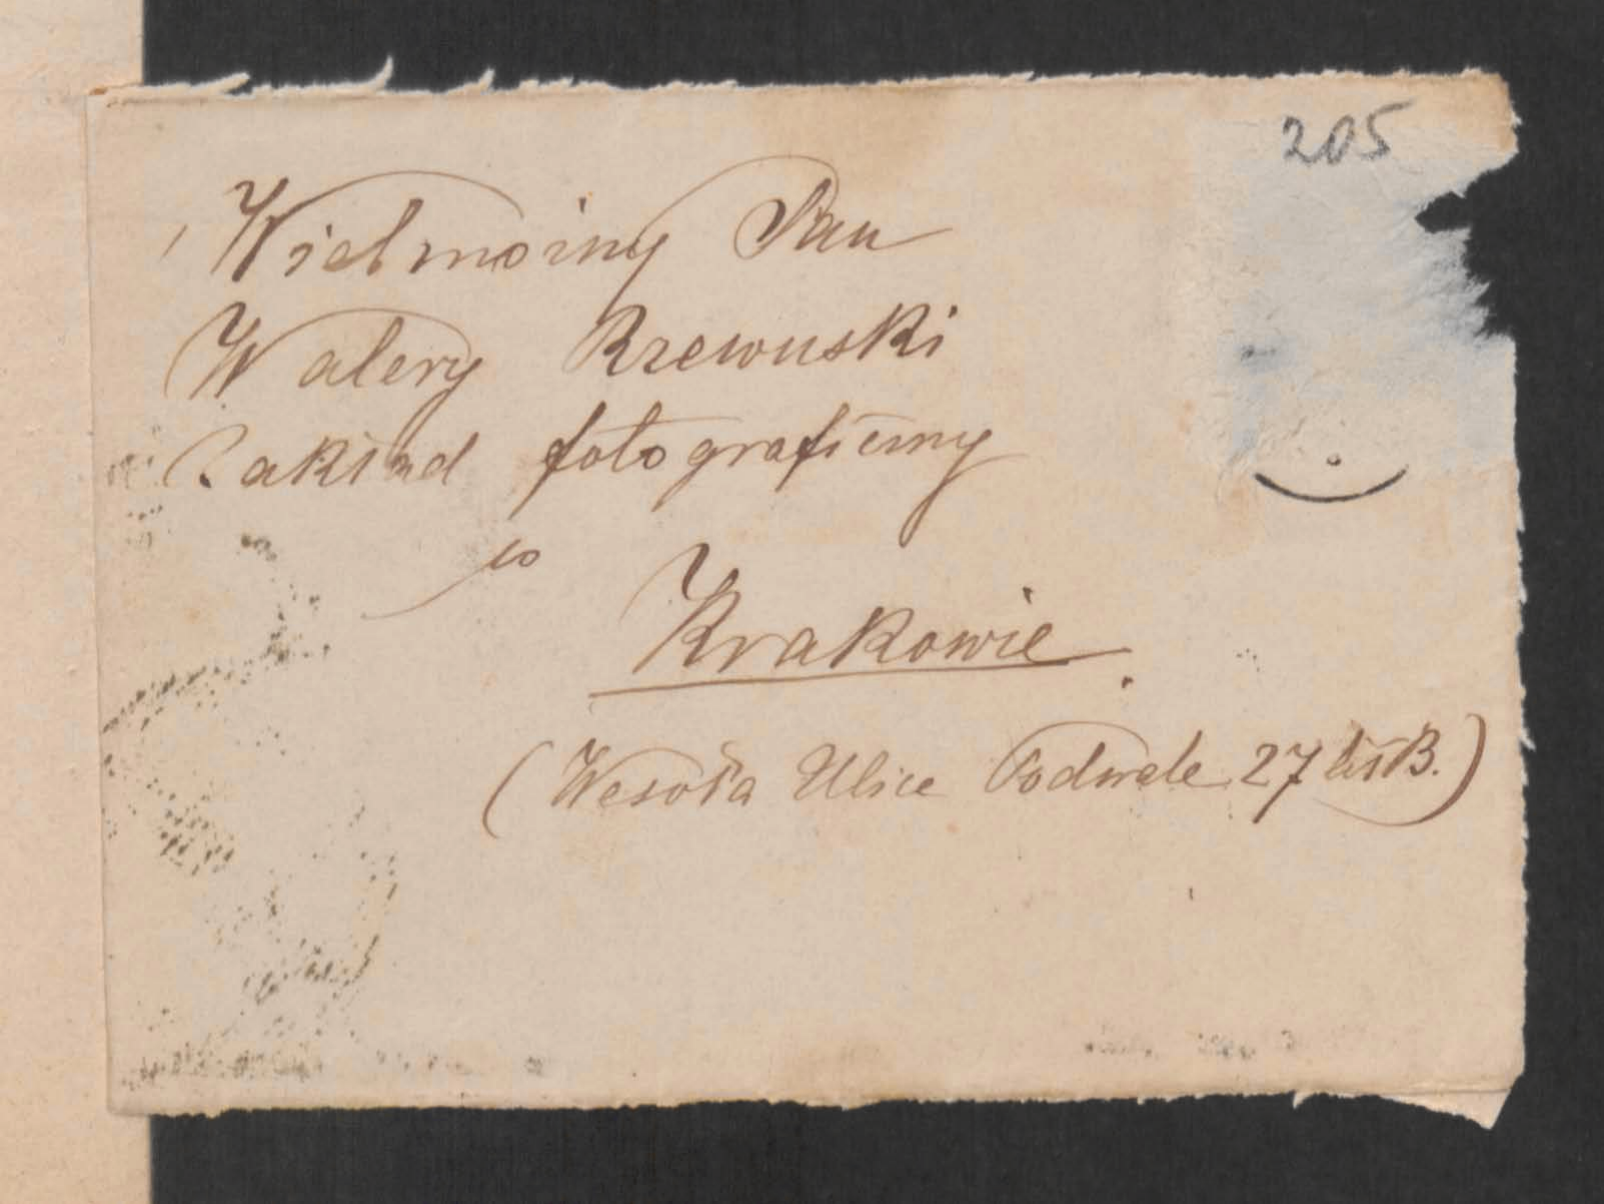 205
Wielmożny Pan
Walery Rzewuski
Zakład fotograficzny
w
Krakowie.
(Wesoła Ulice Podwale 27 lit B.)